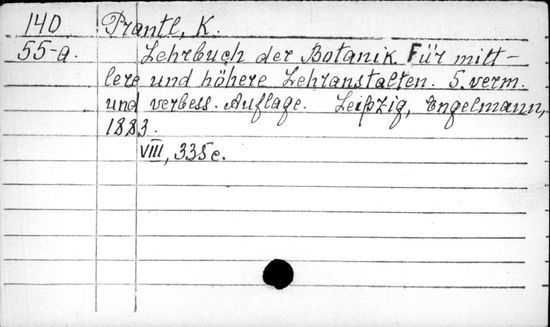 140 Prantl, K.
55-a. Lehrbuch der Botanik für mitt-
lere und höhere Lehranstalten. 5. verm.
und verbess. Auflage. Leipzig, Engelmann,
1883.
VIII, 335 c.